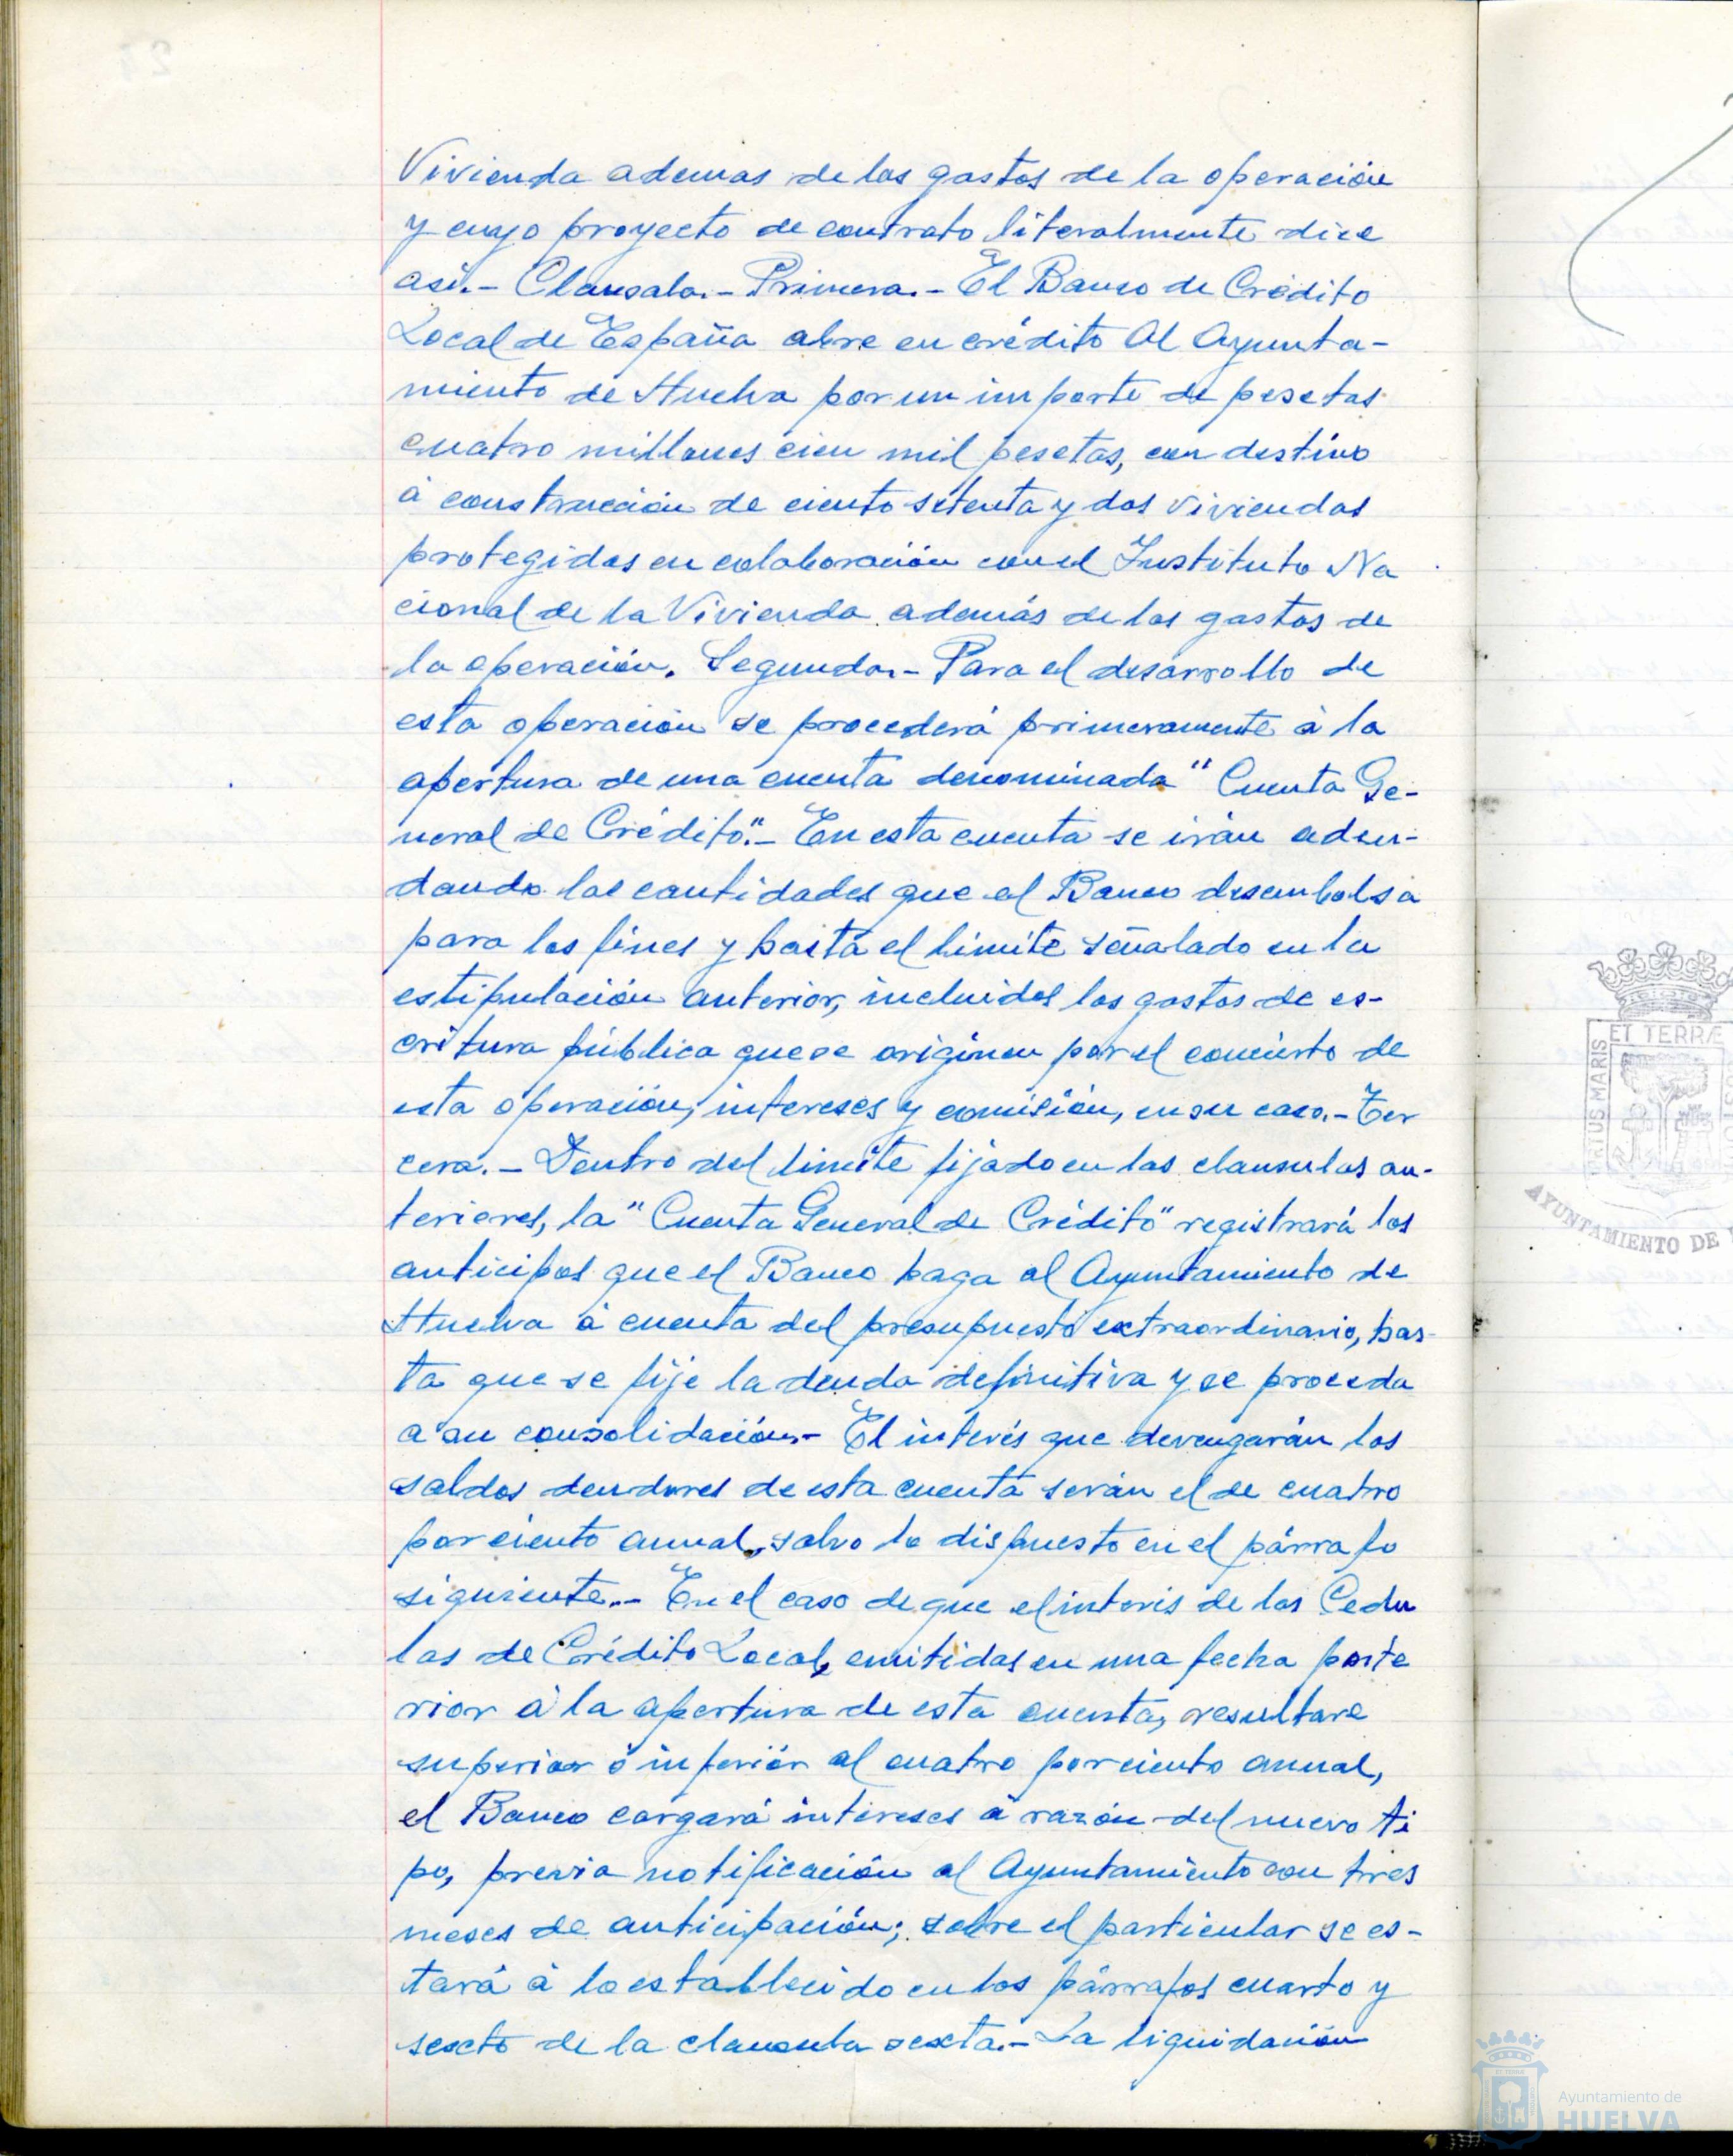 Vivienda ademas de los gastos de la operación
y cuyo proyecto de contrato literalmente dice
asi.- Clausala.- Primera.- El Banco de Crédito
Local de España abre en crédito al Ayunta-
miento de Huelva por un importe de pesetas
cuatro millones cien mil pesetas, con destino
á construcción de ciento setenta y dos viviendas
protegidas en colaboración con el Instituto Na
cional de la Vivienda además de los gastos de
la operación. Segunda.- Para el desarrollo de
esta operación se procederá primeramente á la
apertura de una cuenta denominada "Cuenta Ge-
neral de Crédito".- En esta cuenta se irán adeu-
dando las cantidades que el Banco desembolsa
para los fines y hasta el limite señalado en la
estipulación anterior, incluidos los gastos de es-
critura pública que se originen por el concierto de
esta operación, intereses y comisión, en su caso.- Ter
cera.- Dentro del limite fijado en las clausulas an-
teriores, la "Cuenta General de Crédito" registrará los
anticipos que el Banco haga al Ayuntamiento de
Huelva á cuenta del presupuesto extraordinario, has-
ta que se fije la deuda definitiva y se proceda
a su consolidación.- El interés que devengarán los
saldos deudores de esta cuenta serán el de cuatro
por ciento anual, salvo lo dispuesto en el párrafo
siguiente.- En el caso de que el interis de las Cedu
las de Crédito Local, emitidas en una fecha poste
rior á la apertura de esta cuenta, resultare
superior ó inferior al cuatro por ciento anual,
el Banco cargará intereses á razón del nuevo ti
po, previa notificación al Ayuntamiento con tres
meses de anticipación; sobre el particular se es-
tará á lo establecido en los párrafos cuarto y
sexto de la clausula sexta.- La liquidación
ET TERRÆ
PRTUS MARIS
AYUNTAMIENTO DE
Ayuntamiento de
HUELVA